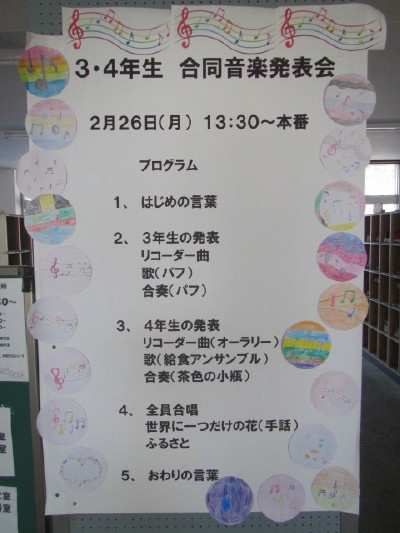 3・4年生 合同音楽発表会
2月26日(月) 13:30～本番
プログラム
1、 はじめの言葉
2、 3年生の発表
リコーダー曲
歌(パフ)
合奏(パフ)
3、 4年生の発表
リコーダー曲(オーラリー)
歌(給食アンサンブル)
合奏(茶色の小瓶)
4、 全員合唱
世界に一つだけの花(手話)
ふるさと
5、 おわりの言葉